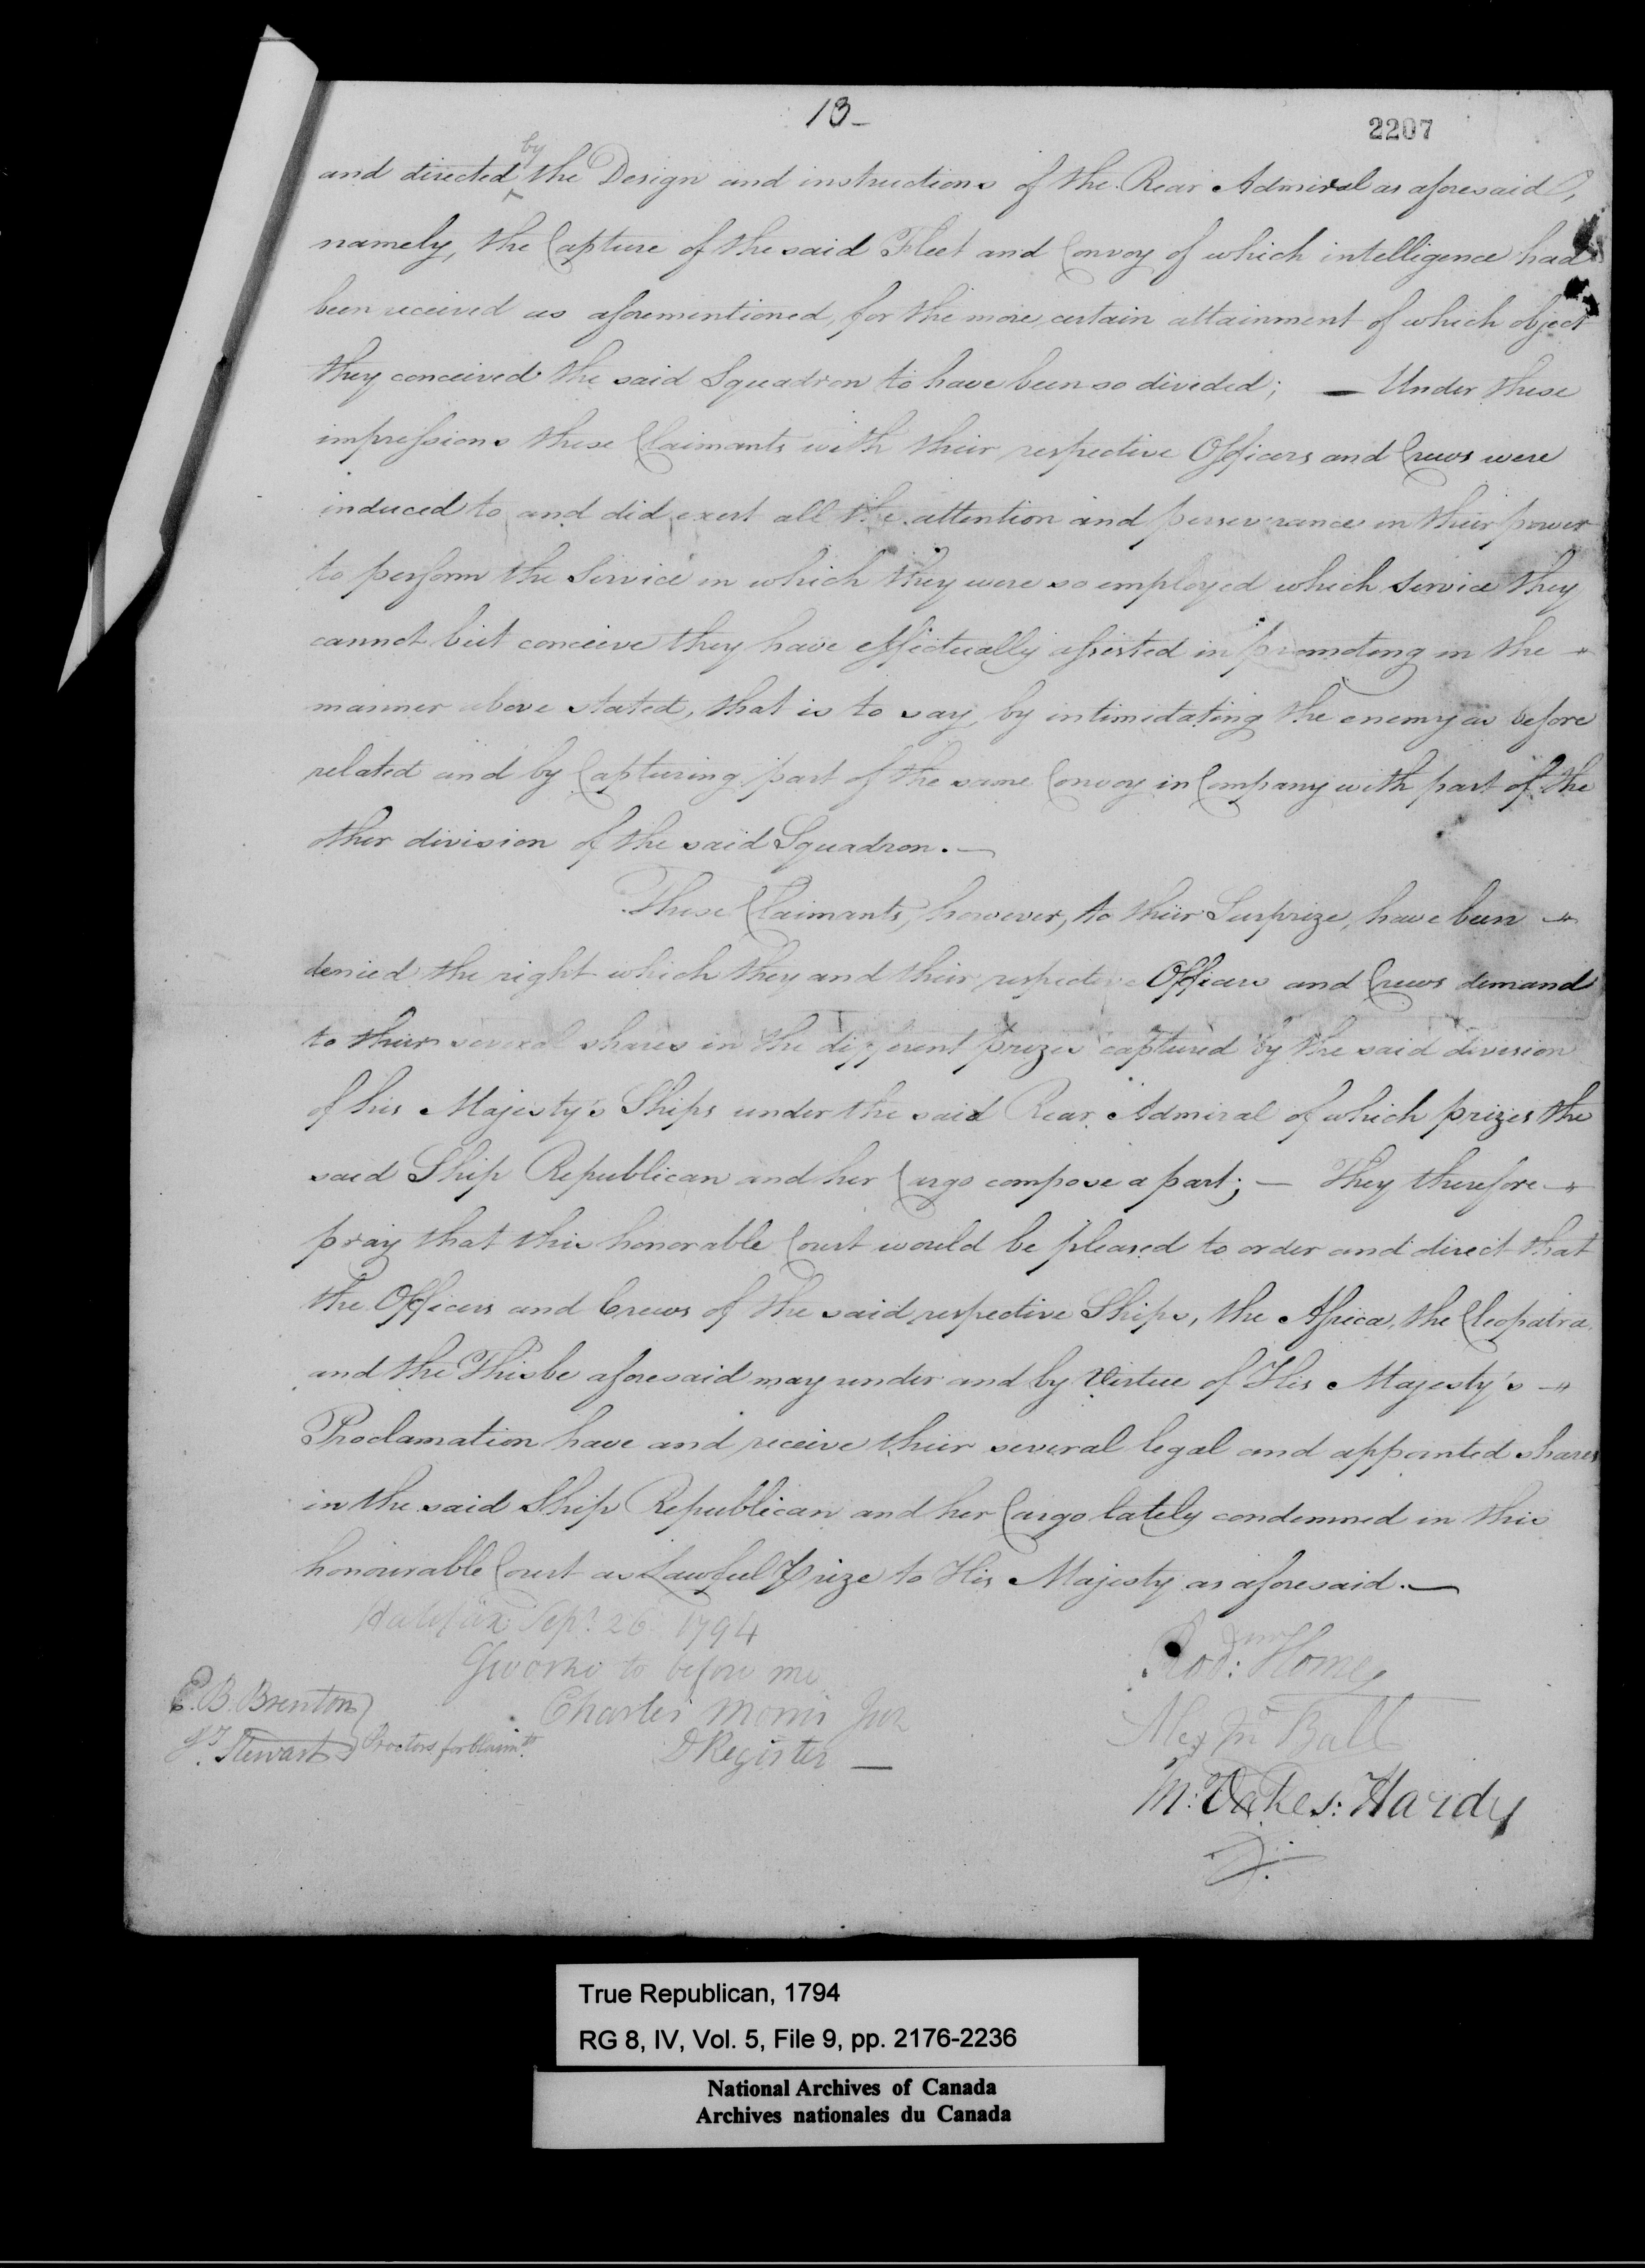 13-
2207
and directed by the Design and instructions of the Rear Admiral as aforesaid,
namely, the Capture of the said Fleet and Convoy of which intelligence had
been received as aforementioned, for the more certain attainment of which object
they conceived the said Squadron to have been so divided; — Under these
impressions these Claimants with their respective Officers and Crews were
induced to and did exert all the attention and perseverance in their power
to perform the Service in which they were so employed which Service they
cannot but conceive they have effectually assisted in promoting in the
manner above stated, that is to say, by intimidating the enemy as before
related and by Capturing part of the same Convoy in Company with part of the
other division of the said Squadron. —
These Claimants, however, to their Surprize, have been
denied the right which they and their respective Officers and Crews demand
to their several shares in the different prizes captured by the said division
of his Majesty's Ships under the said Rear Admiral of which prizes the
said Ship Republican and her Cargo compose a part; — They therefore
pray that this honorable Court would be pleased to order and direct that
the Officers and Crews of the said respective Ships, the Africa, the Cleopatra
and the Thisbe aforesaid may under and by Virtue of His Majesty's
Proclamation have and receive their several legal and appointed shares
in the said Ship Republican and her Cargo lately condemned in this
honourable Court as Lawful Prize to His Majesty as aforesaid. —
Halifax Sepr. 26 1794
Sworn to before me
Charles Morris Junr
D Register —
E. B. Brenton
Js. Stewart } Proctors for Claimts.
Rod: Home
Alexr Jn Ball
M: Oakes: Hardy
True Republican, 1794
RG 8, IV, Vol. 5, File 9, pp. 2176-2236
National Archives of Canada
Archives nationales du Canada